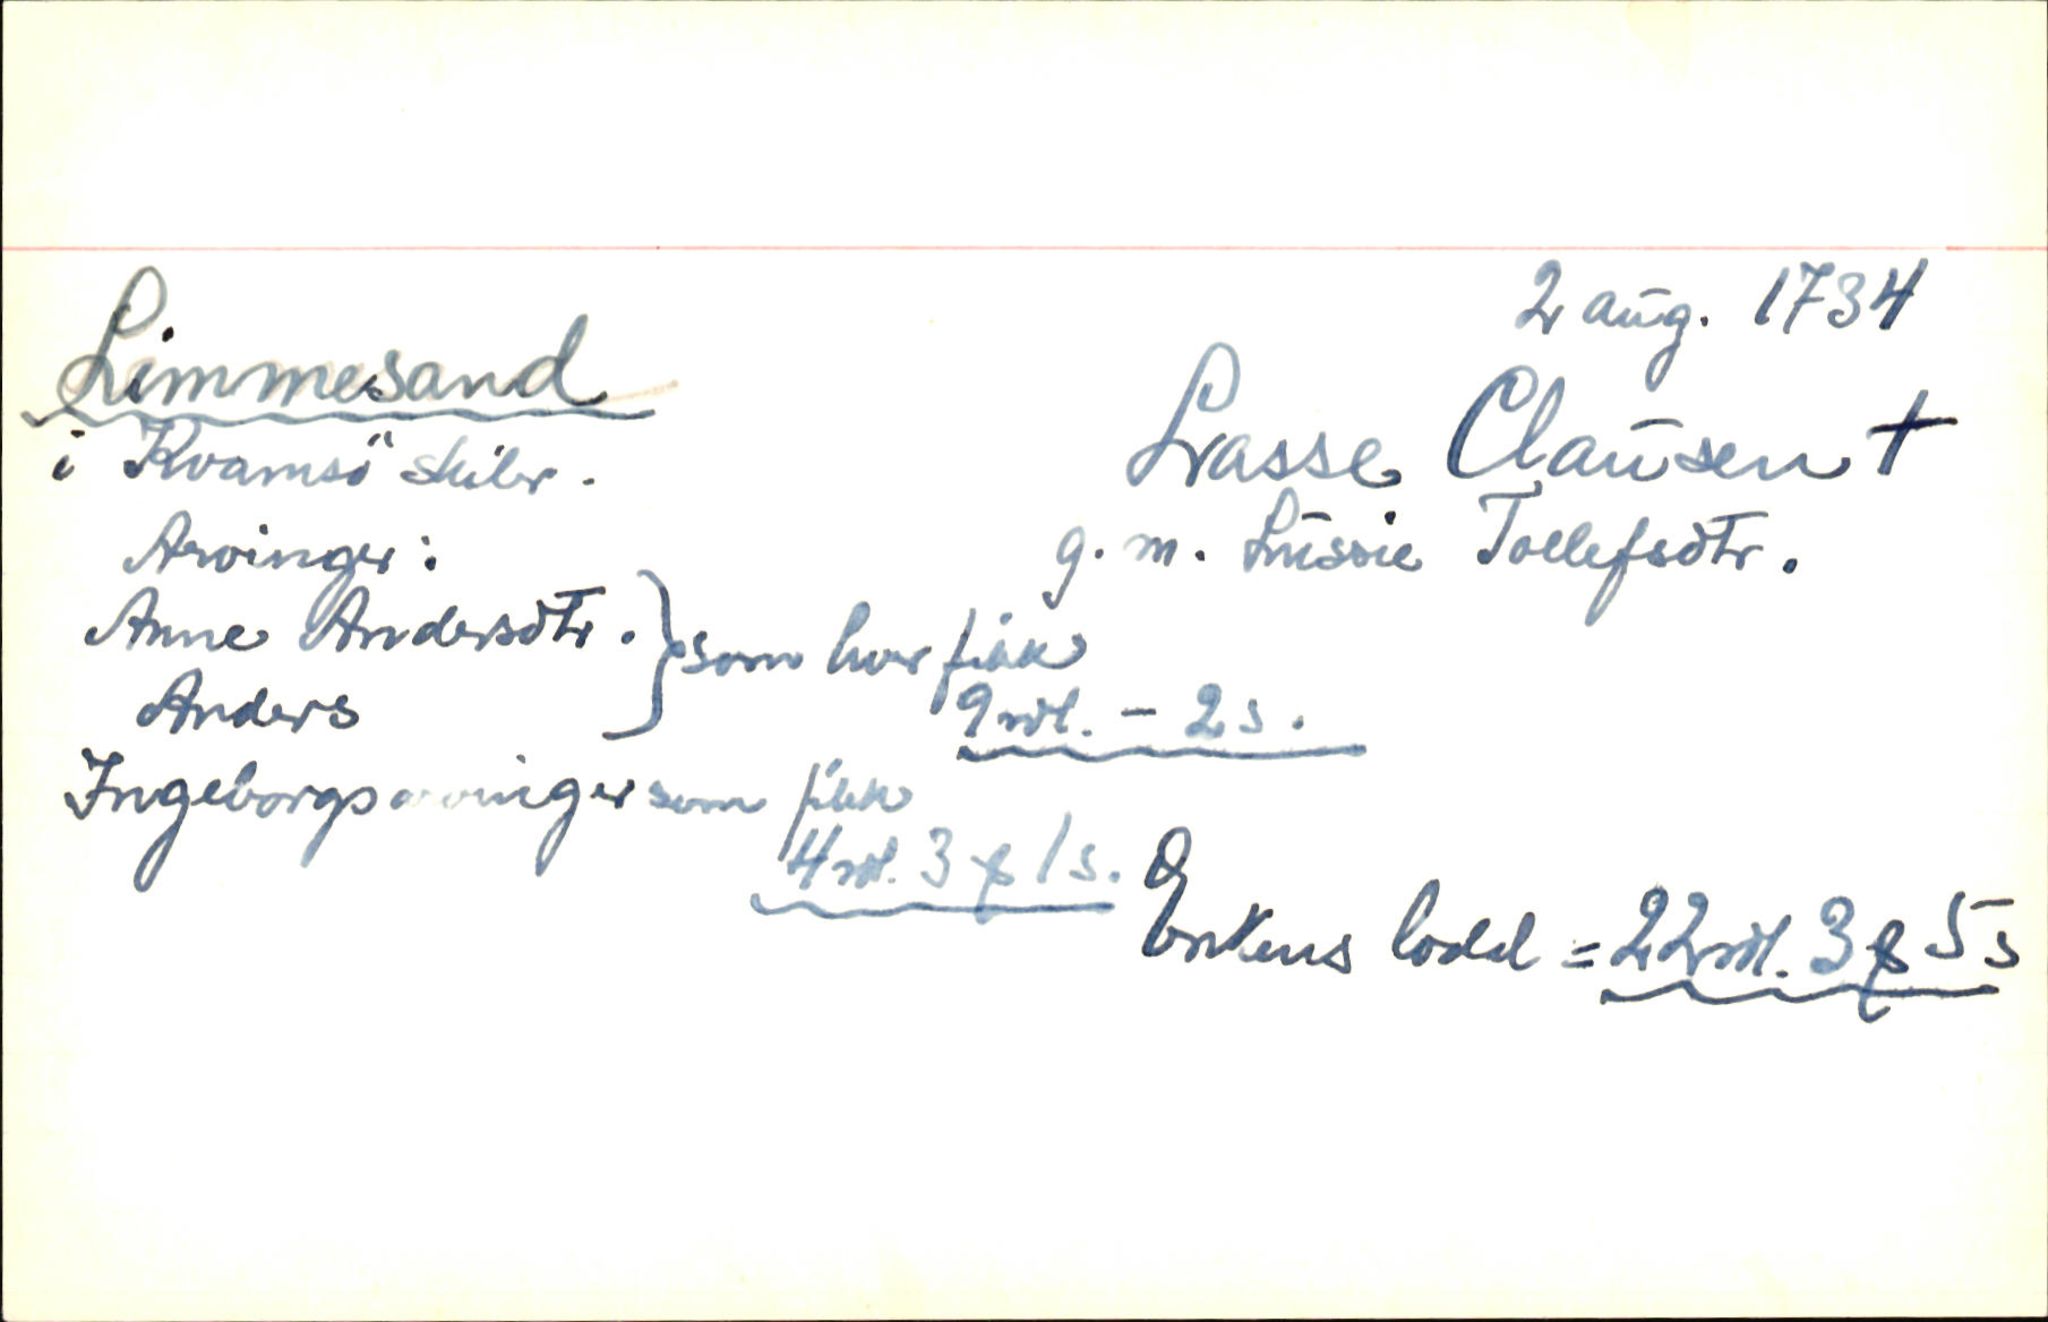 2 aug. 1734
Limmesand
i Kvamsö skibr.
Lasse Clausen †
g. m. Lussie Tollefsdtr.
Arvinger:
Anne Andersdtr. } som hver fikk
Anders
9 rdl. - 2 s.
Ingeborgs arvinger som fikk
4 rdl. 3 ꝑ 1 s.
Enkens lodd = 22 rdl. 3 ꝑ 5 s